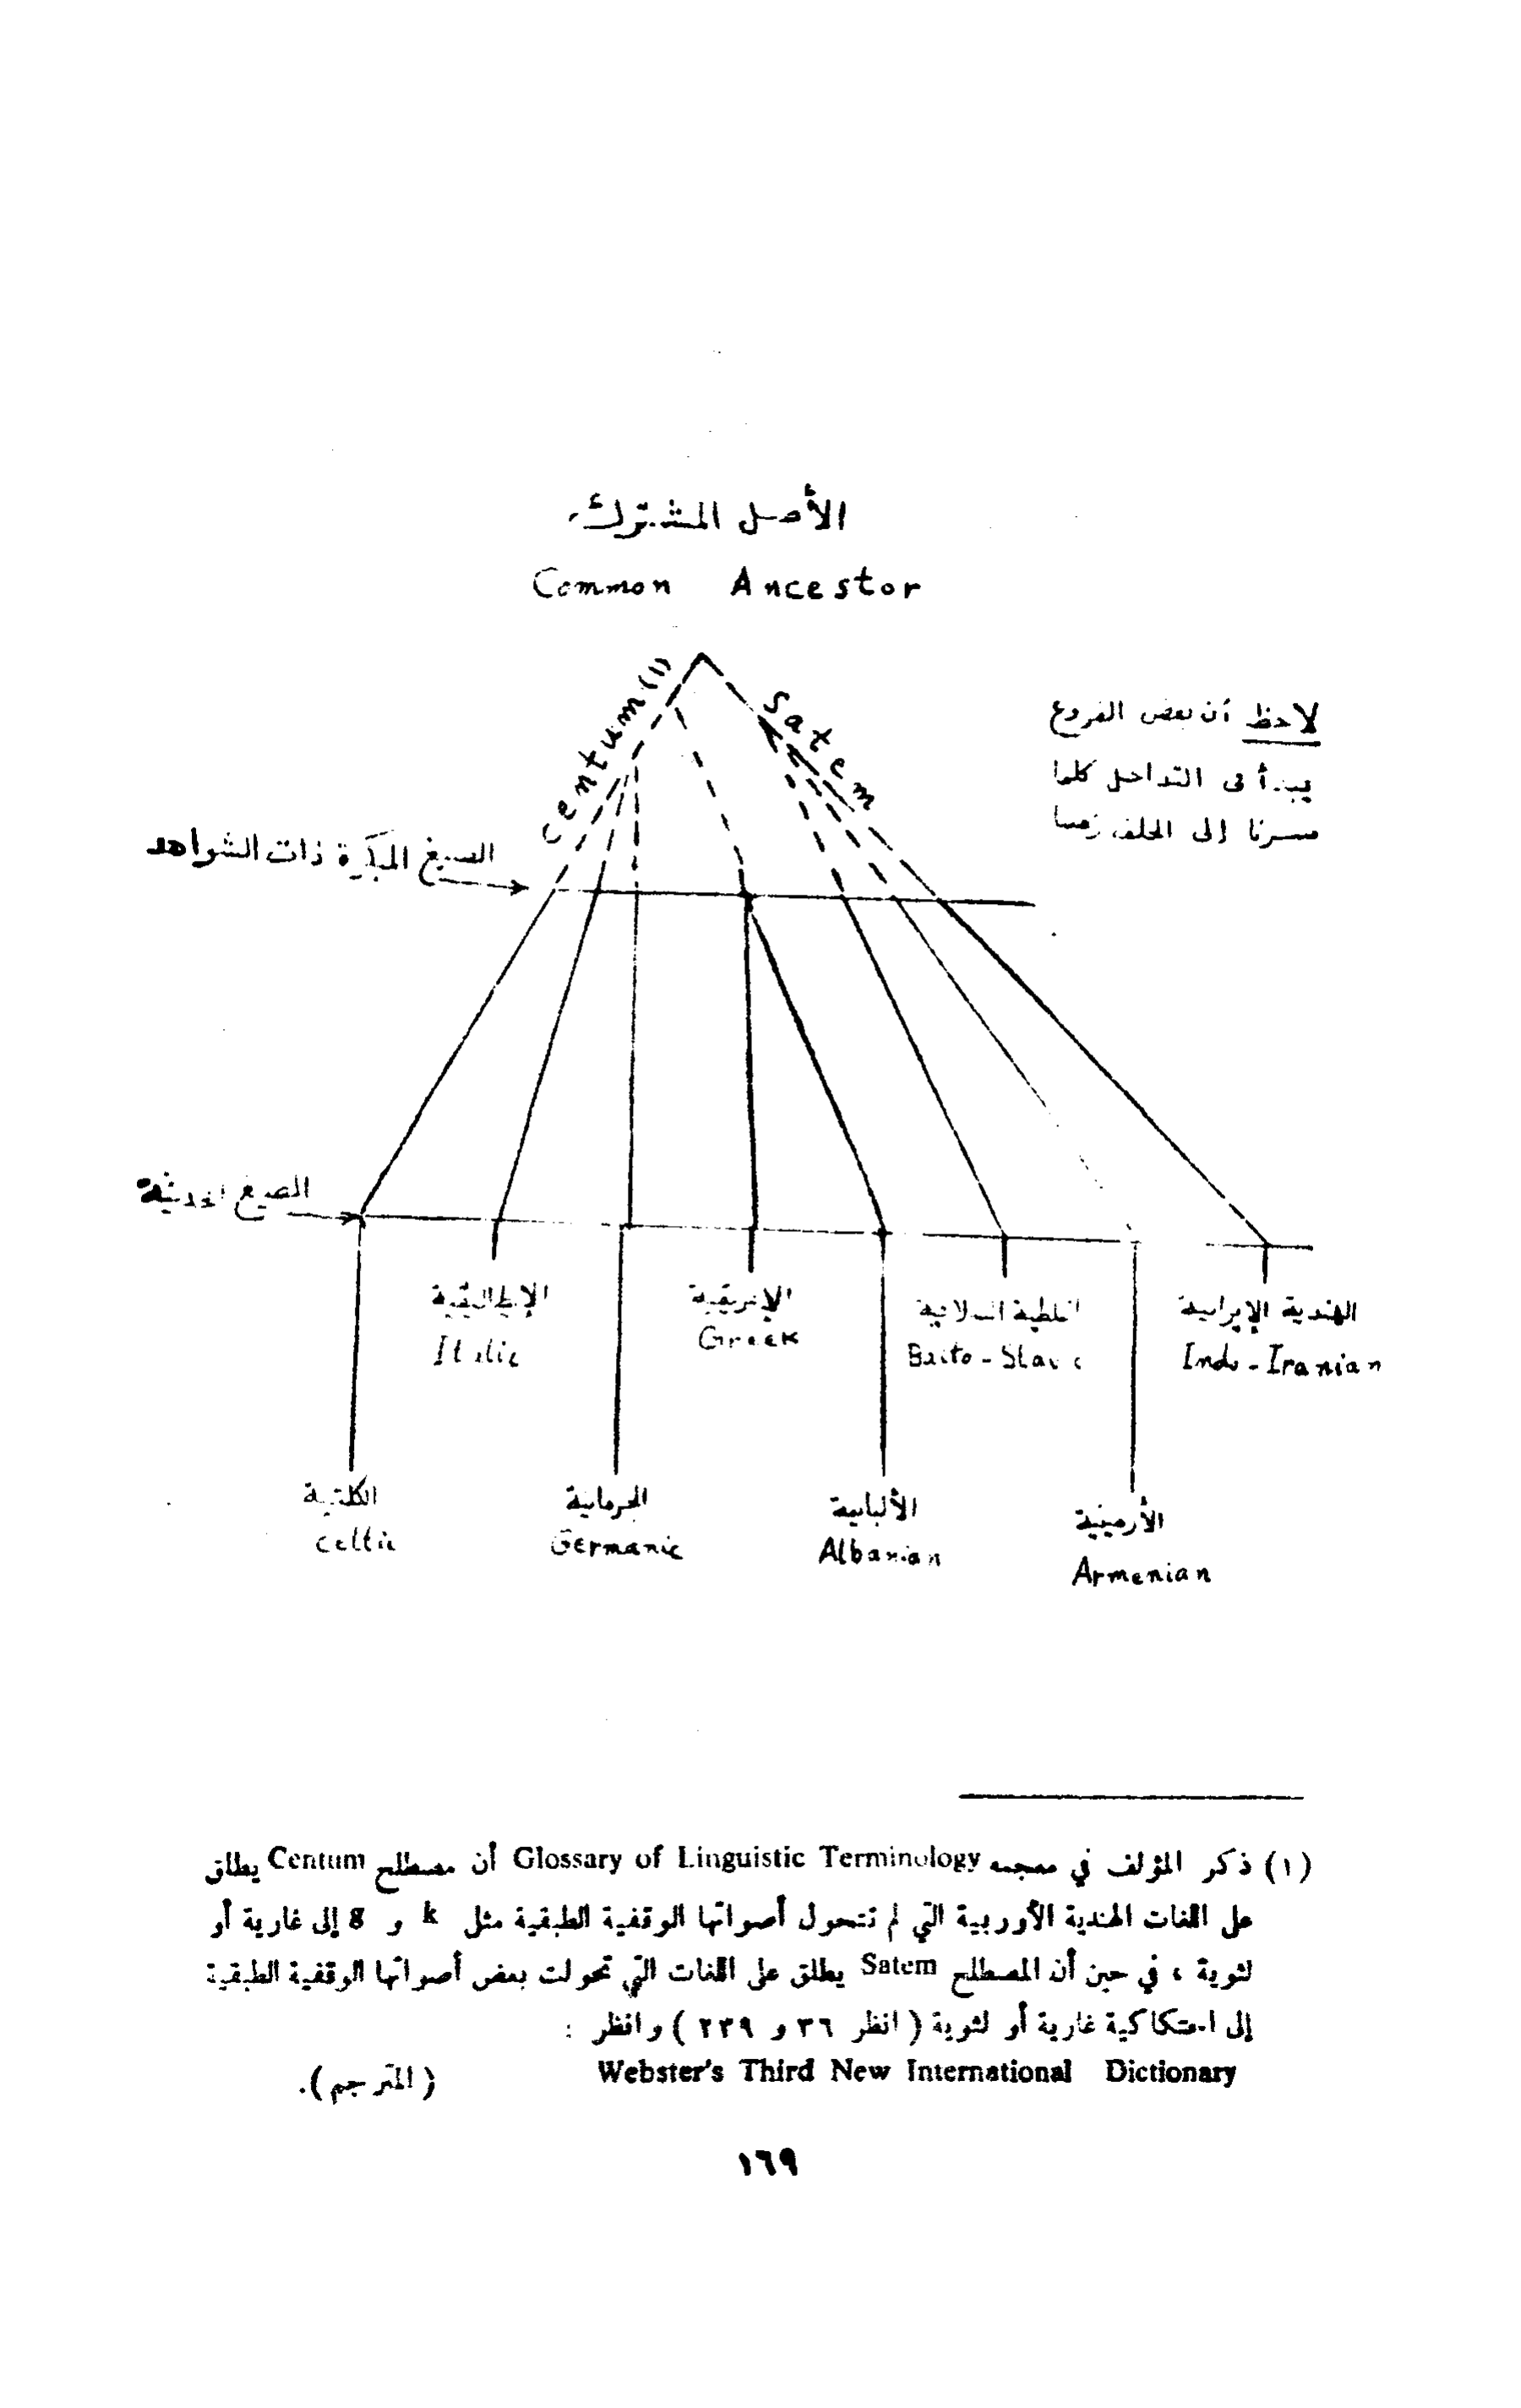 الأصل المشترك
Common Ancestor
centum (١)
Satem
لاحظ أن بعض الفروع
يبدأ في التداخل كلما
سرنا إلى الخلف زمنيا
الصيغ المبكرة ذات الشواهد
الصيغ الحديثة
الهندية الإيرانية
Indo-Iranian
البلطية السلافية
Balto-Slavic
الإغريقية
Greek
الإيطاليقية
Italic
الأرمينية
Armenian
الألبانية
Albanian
الجرمانية
Germanic
الكلتية
Celtic
(١) ذكر المؤلف في معجمه Glossary of Linguistic Terminology أن مصطلح Centum يطلق
على اللغات الهندية الأوربية التي لم تتحول أصواتها الوقفية الطبقية مثل k و g إلى غارية أو
لثوية ، في حين أن المصطلح Satem يطلق على اللغات التي تحولت بعض أصواتها الوقفية الطبقية
إلى احتكاكية غارية أو لثوية ( انظر ٣٦ و ٢٣٩ ) وانظر :
Webster's Third New International Dictionary
( المترجم ).
١٦٩